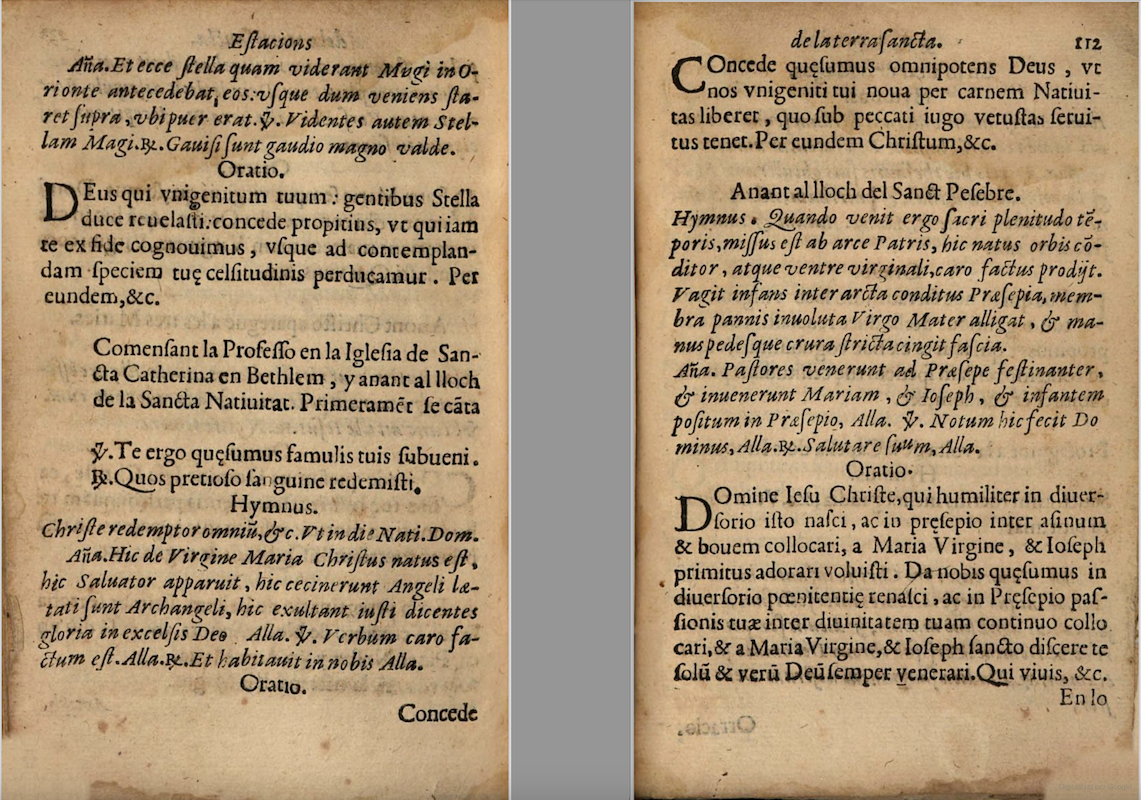 Estacions
Aña. Et ecce stella quam viderant Mugi in O-
rionte antecedebat, eos: vsque dum veniens sta-
ret supra, vbi puer erat. ℣. Videntes autem Stel-
lam Magi. ℟. Gauisi sunt gaudio magno valde.
Oratio.
DEus qui vnigenitum tuum : gentibus Stella
duce reuelasti: concede propitius, vt qui iam
te ex fide cognouimus, vsque ad contemplan-
dam speciem tuę celsitudinis perducamur. Per
eundem, &c.
Comensant la Professo en la Iglesia de San-
cta Catherina en Bethlem, y anant al lloch
de la Sancta Natiuitat. Primeramẽt se cãta
℣. Te ergo quęsumus famulis tuis subueni.
℟. Quos pretioso sanguine redemisti.
Hymnus.
Christe redemptor omniũ, &c. Vt in die Nati. Dom.
Aña. Hic de Virgine Maria Christus natus est,
hic Saluator apparuit, hic cecinerunt Angeli læ-
tati sunt Archangeli, hic exultant iusti dicentes
gloria in excelsis Deo Alla. ℣. Verbum caro fa-
ctum est. Alla. ℟. Et habitauit in nobis Alla.
Oratio.
Concede
de la terra sancta. 112
COncede quęsumus omnipotens Deus, vt
nos vnigeniti tui noua per carnem Natiui-
tas liberet, quo sub peccati iugo vetustas seruI-
tus tenet. Per eundem Christum, &c.
Anant al lloch del Sanct Pesebre.
Hymnus. Quando venit ergo sacri plenitudo tẽ-
poris, missus est ab arce Patris, hic natus orbis cõ-
ditor, atque ventre virginali, caro factus prodijt.
Vagit infans inter arcta conditus Præsepia, mem-
bra pannis inuoluta Virgo Mater alligat, & ma-
nus pedesque crura stricta cingit fascia.
Aña. Pastores venerunt ad Præsepe festinanter,
& inuenerunt Mariam, & Ioseph, & infantem
positum in Præsepio, Alla. ℣. Notum hic fecit Do
minus, Alla. ℟. Salutare suum, Alla.
Oratio.
DOmine Iesu Christe, qui humiliter in diuer-
sorio isto nasci, ac in pręsepio inter asinum
& bouem collocari, a Maria Virgine, & Ioseph
primitus adorari voluisti. Da nobis quęsumus in
diuersorio pœnitentię renasci, ac in Pręsepio pas-
sionis tuæ inter diuinitatem tuam continuo collo
cari, & a Maria Virgine, & Ioseph sancto discere te
solũ & verũ Deũ semper venerari. Qui viuis, &c.
En lo